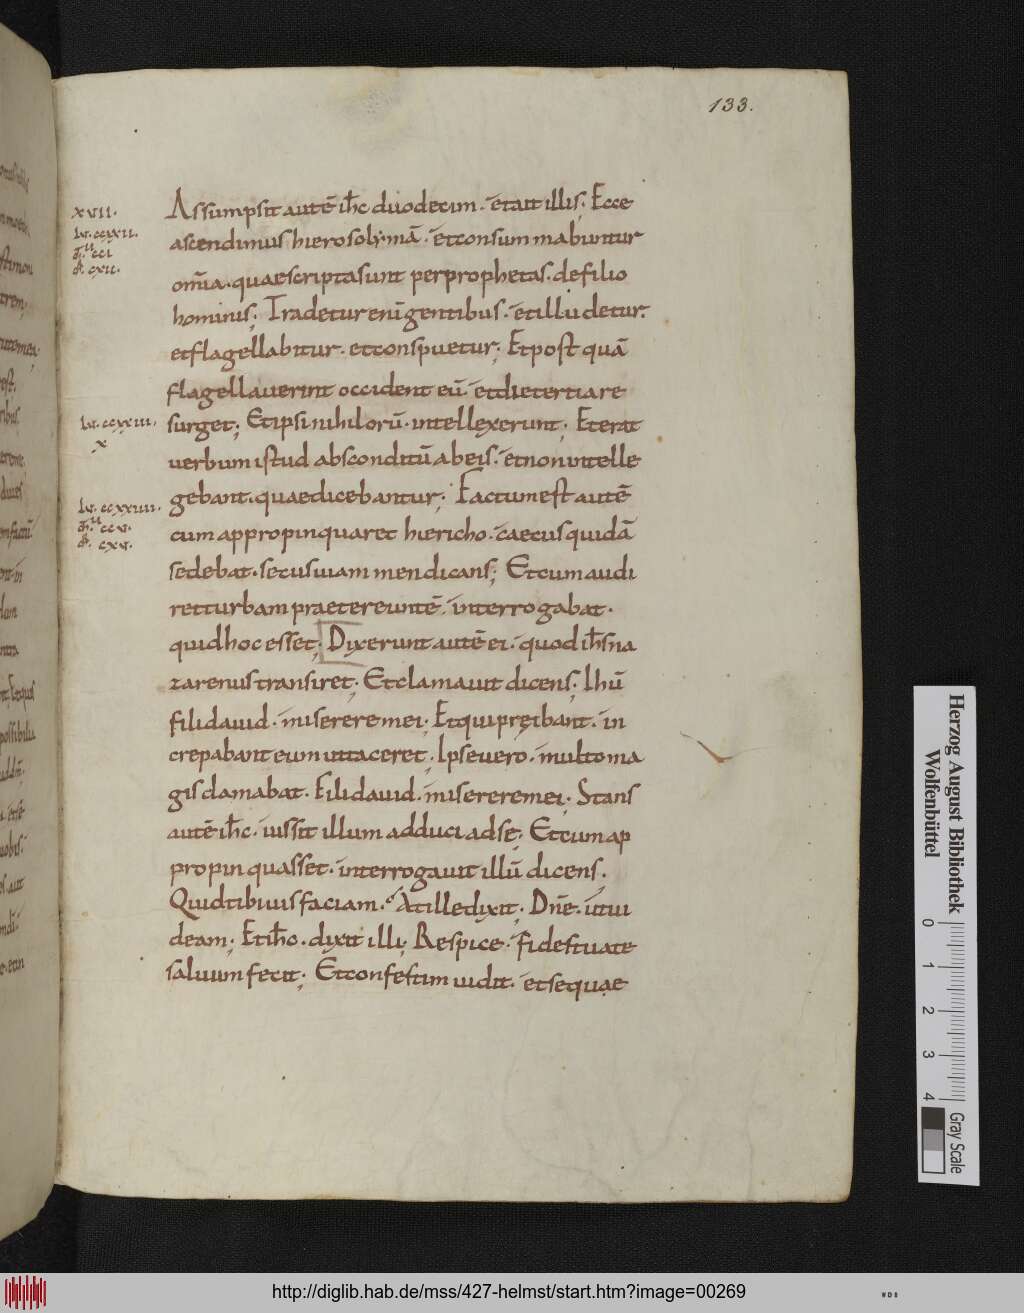 133.
xvii.
Lv. ccxxii.
ccı
cxıı.
Assumpsit autē ih̅c duodecim · et ait illis ; Ecce
ascendimus hierosolymā · et consummabuntur
om̅ia · quae scripta sunt per prophetas · de filio
hominis ; Tradetur enī gentibus · et illudetur ·
et flagellabitur · et conspuetur ; Et post quā
flagellauerint occident eū · et die tertia re
surget ; Et ipsi nihil horū · intellexerunt ; Et erat
Lv. ccxxiii.
x
uerbum istud absconditū ab eis · et non intelle
gebant · quae dicebantur ; Factum est autē
Lv. ccxxiiii.
ccv.
cxv.
cum appropinquaret hiericho · caecus quidā
sedebat · secus uiam mendicans ; Et cum audi
ret turbam praetereuntē · interrogabat ·
quid hoc esset ; Dixerunt autē ei · quod ih̅s na
zarenus transiret ; Et clamauit dicens ; Ihū
fili dauid · miserere mei ; Et qui preibant · in
crepabant eum ut taceret ; Ipse uero · multo ma
gis clamabat · Fili dauid · miserere mei ; Stans
autē ih̅c · iussit illum adduci ad se ; Et cum ap
propinquasset · interrogauit illū dicens ·
Quid tibi uis faciam · At ille dixit ; Dn̅e · ut ui
deam ; Et ih̅c · dixit illi ; Respice · fides tua te
saluum fecit ; Et confestim uidit · et sequae
Herzog August Bibliothek
Wolfenbüttel
0 1 2 3 4
Gray Scale
http://diglib.hab.de/mss/427-helmst/start.htm?image=00269